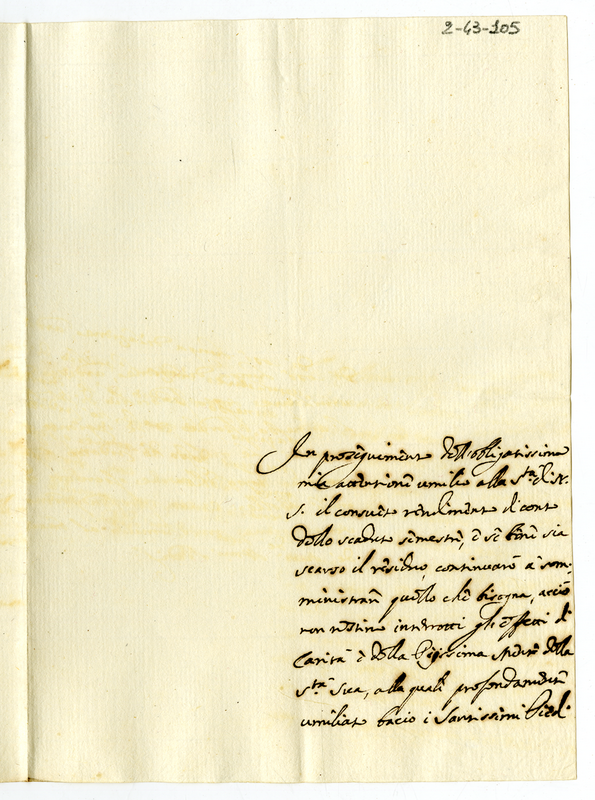 2-43-105
In proseguimento dell'obligatissime
mie attentioni umilio alla S.ta di N.
S. il consueto rendimento di conto
dello scaduto semestre, e se bene sia
scarso il residuo, continuarò a som-
ministrare quello che bisogna, acciò
non restino interrotti gli effetti di
Carità e della Piissima mente della
S.ta Sua, alla quale profondamente
umiliato bacio i Santissimi Piedi